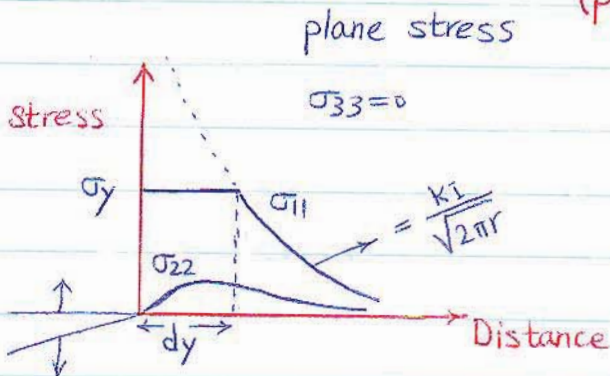 (p
plane stress
σ33=0
stress
σy
σ11
= KI/√2πr
σ22
dy
Distance